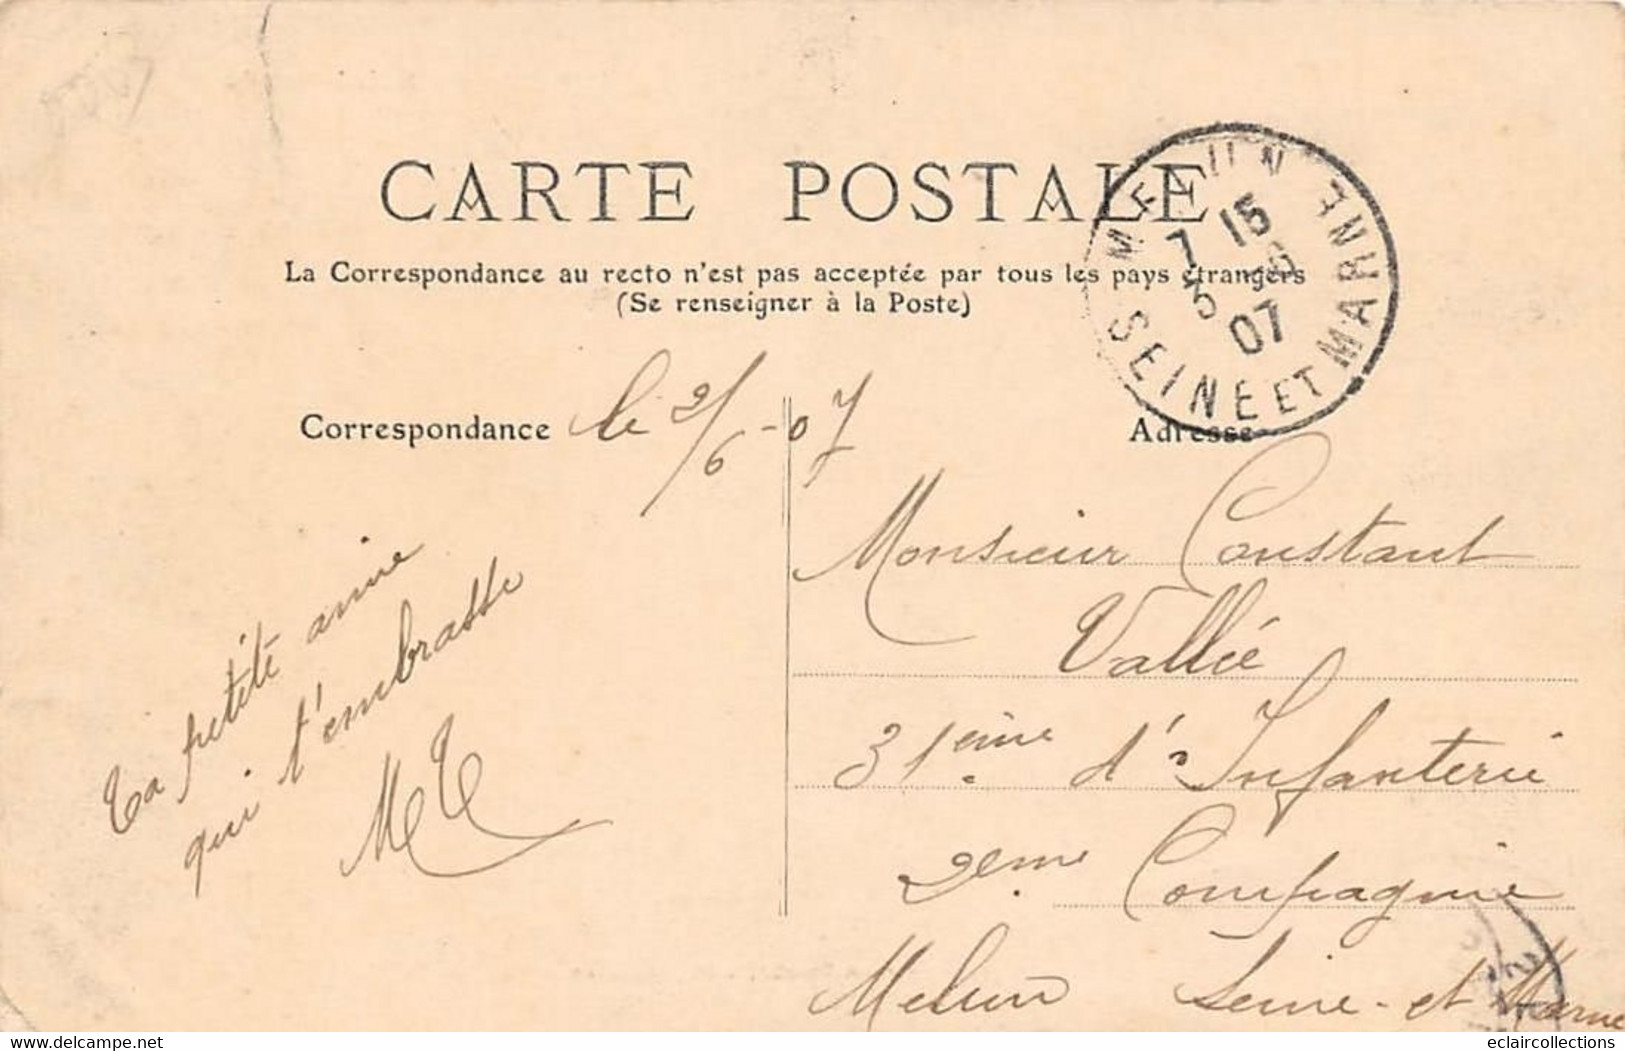 CARTE POSTALE
La Correspondance au recto n'est pas acceptée par tous les pays étrangers
(Se renseigner à la Poste)
MELUN
7 15
07
SEINE ET MARNE
Correspondance
le 2/6-07
Adresse
Ta petite amie
qui t'embrasse
MT
Monsieur Constant
Vallée
31ème d'Infanterie
2eme Compagnie
Melun Seine-et Marne
eclaircollections